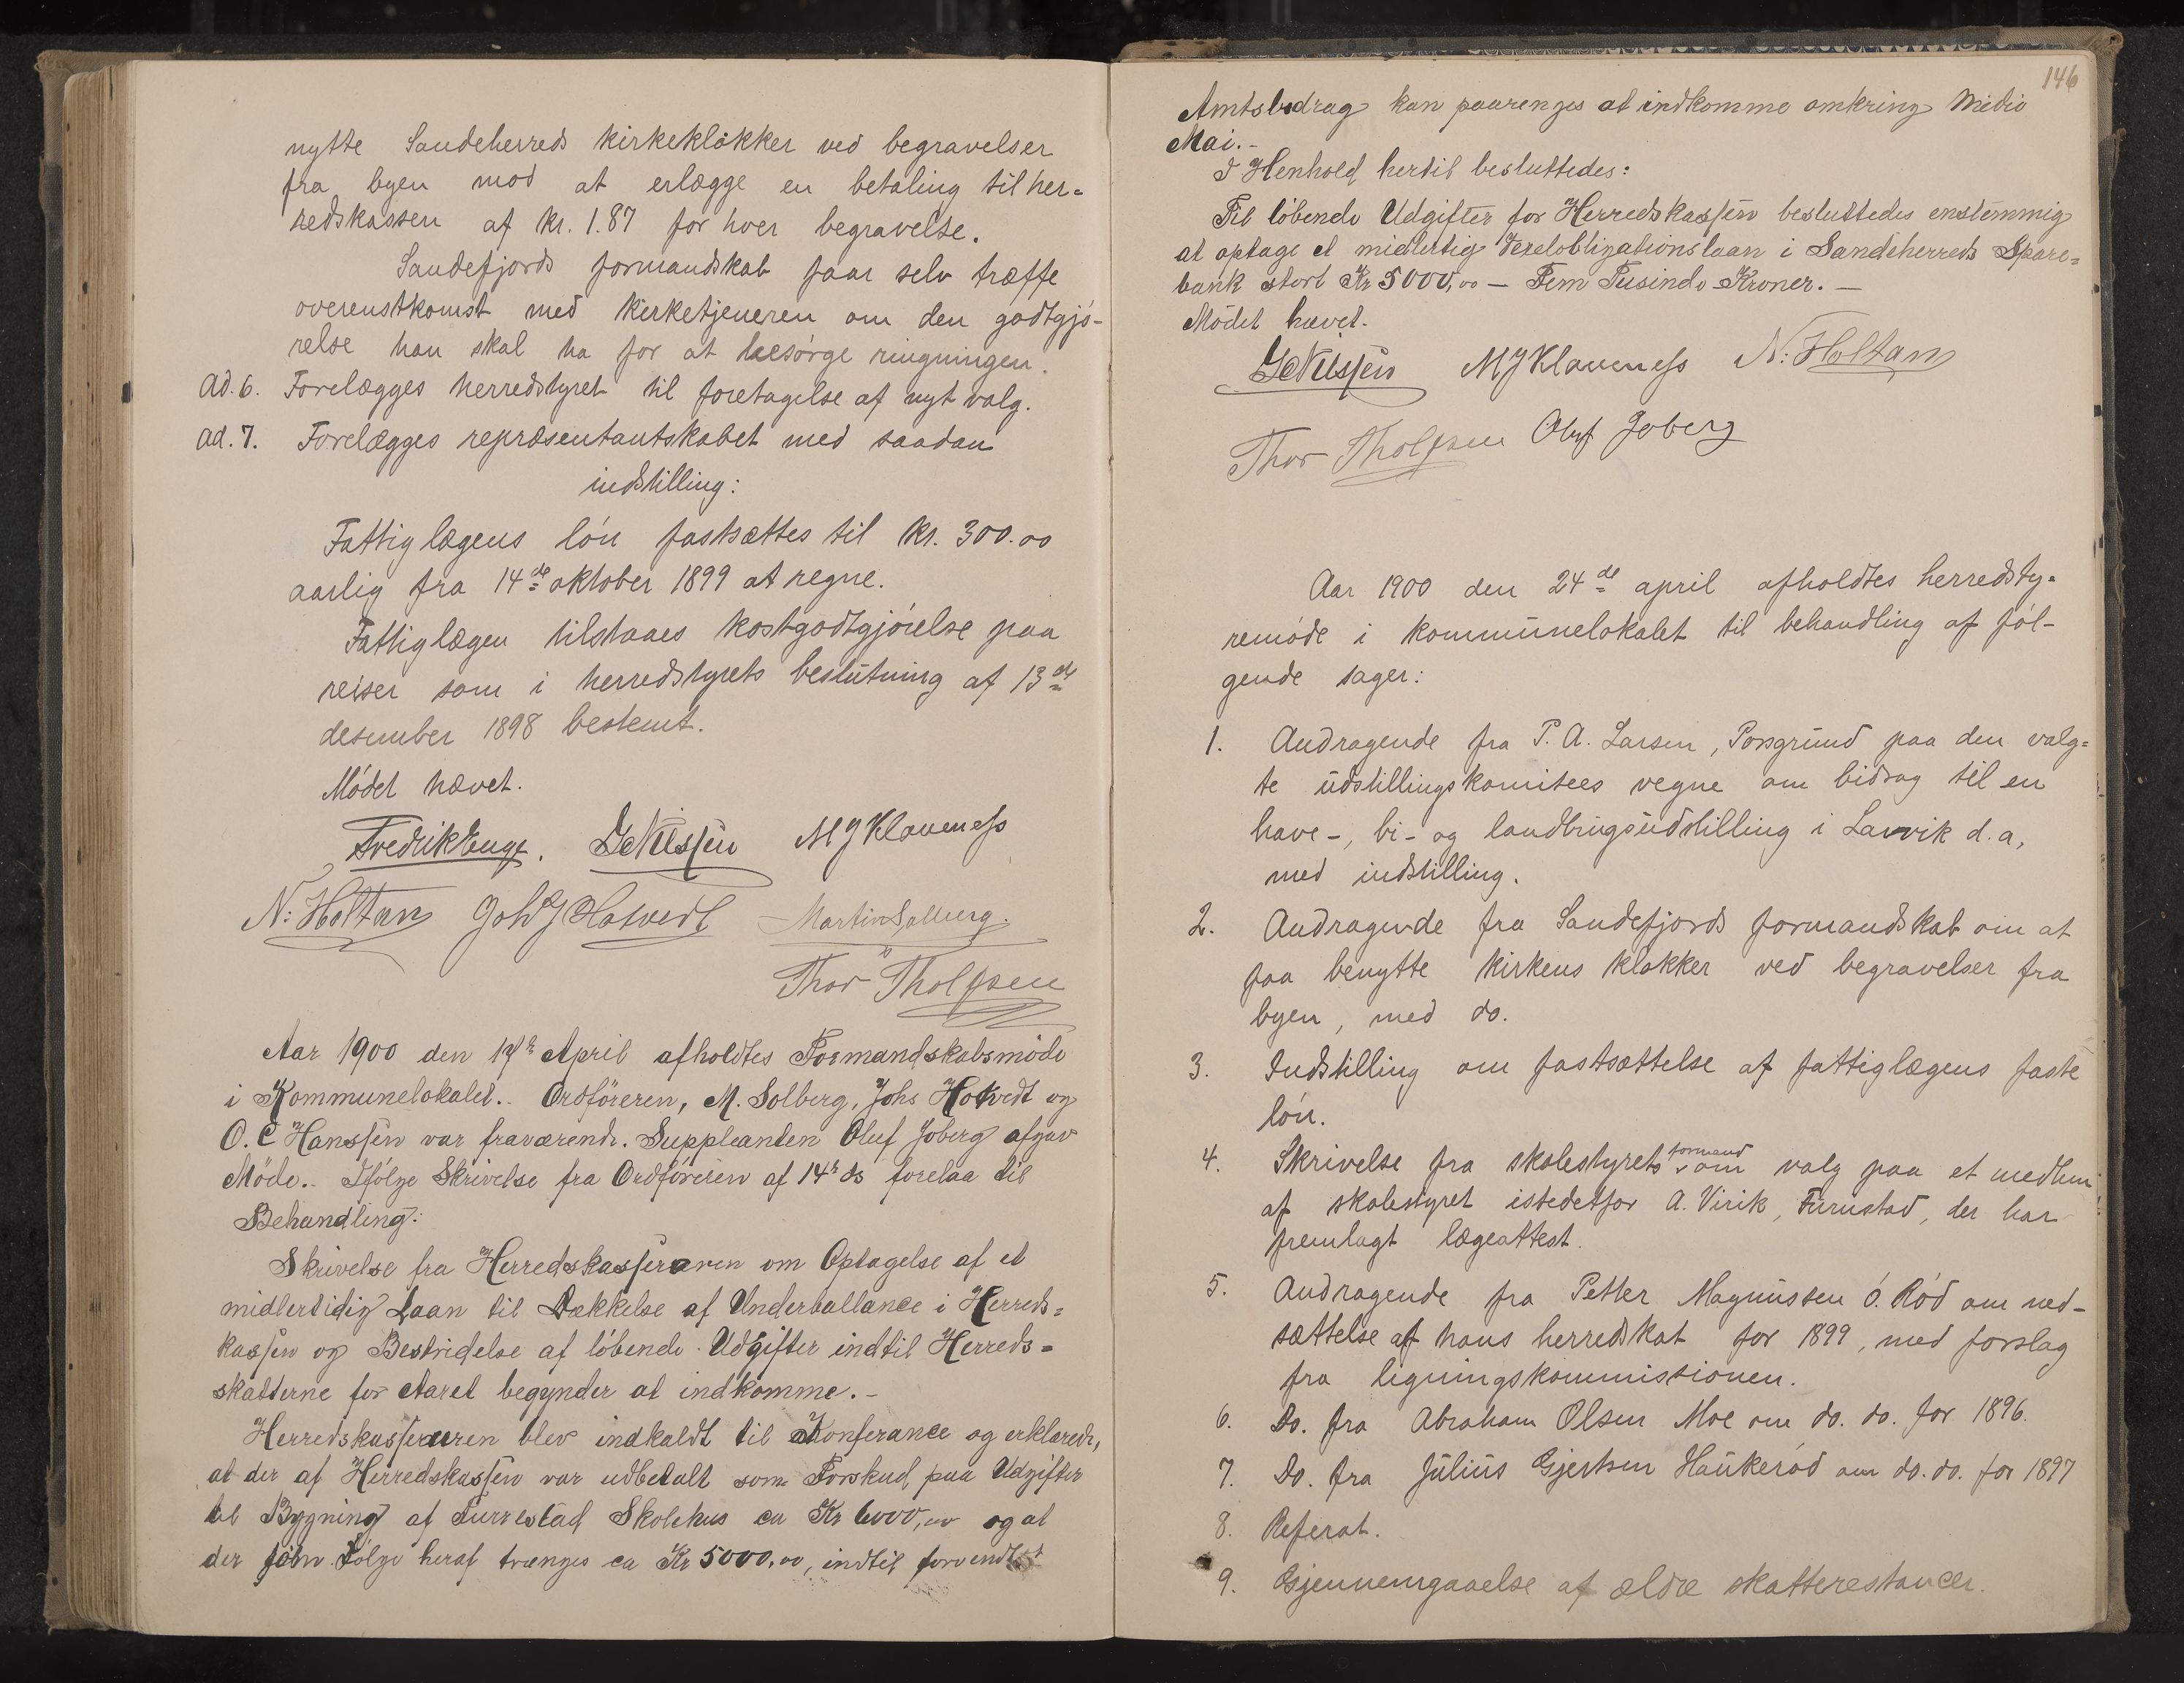 nytte Sandeherreds kirkeklokker ved begravelser
fra byen mod at erlægge en betaling til her-
redskassen af kr. 1.87 for hver begravelse.
Sandefjords formandskab faar selv træffe
overenstkomst med kirketjeneren om den godtgjö-
relse han skal ha for at besörge ringningen.
ad. 6. Forelægges herredstyret til foretagelse af nyt valg.
ad. 7. Forelægges repræsentantskabet med saadan
indstilling:
Fattiglægens lön fastsættes til kr. 300.00
aarlig fra 14de oktober 1899 at regne.
Fattiglægen tilstaaes kostgodtgjörelse paa
reiser som i herredstyrets beslutning af 13de
desember 1898 bestemt.
Mödet hævet.
Fredrik Enge. L Nilssen M J Klaveness
N: Holtan Johs J Hotvedt Martin Solberg.
Thor Tholfsen
Aar 1900 den 17de April afholdtes Formandskabsmöde
i Kommunelokalet. Ordföreren, M. Solberg, Johs Hotvedt og
O. C Hanssen var fraværende. Suppleanten Oluf Joberg afgav
Möde. Ifölge Skrivelse fra Ordföreren af 14de ds forelaa til
Behandling:
Skrivelse fra Herredskassereren om Optagelse af et
midlertidig Laan til Dækkelse af Underballance i Herreds=
kassen og Bestridelse af löbende Udgifter indtil Herreds=
skatterne for Aaret begynder at indkomme.-
Herredskassereren blev indkaldt til Konferance og erklærede,
at der af Herredskassen var udbetalt som Forskud paa Udgifter
til Bygning af Furrestad Skolehus ca Kr 6000,00 og at
der som Fölge heraf trænges ca Kr 5000.00, indtil forventet
146
Amtsbidrag kan paarenges at indkomme omkring Medio
Mai.-
I Henhold hertil besluttedes:
Til löbende Udgifter for Herredskassen besluttedes enstemmig
at optage et midlertig Vexelobligationslaan i Sandeherreds Spare=
bank stort Kr 5000,00 - Fem Tusinde Kroner. -
Mödet hævet.
L Nilssen M J Klaveness N: Holtan
Thor Tholfsen Oluf Joberg
Aar 1900 den 24de april afholdtes herredsty-
remöde i kommunelokalet til behandling af föl-
gende sager:
1. Andragende fra P. A. Larsen, Porsgrund paa den valg=
te udstillingskomitees vegne om bidrag til en
have-, bi- og landbrugsudstilling i Larvik d.a,
med indstilling.
2. Andragende fra Sandefjords formandskab om at
faa benytte kirkens klokker ved begravelser fra
byen, med do.
3. Indstilling om fastsættelse af fattiglægens faste
lön.
4. Skrivelse fra skolestyrets formand om valg paa et medlem
af skolestyret istedetfor A. Virik, Furustad, der har
fremlagt lægeattest.
5. Andragende fra Petter Magnussen ö. Röd om ned-
sættelse af hans herredskat for 1899, med forslag
fra ligningskommissionen.
6. Do. fra Abraham Olsen Moe om do. do. for 1896.
7. Do. fra Julius Gjertsen Haukeröd om do. do. for 1897
8. Referat.
9. Gjennemgaaelse af ældre skatterestancer.